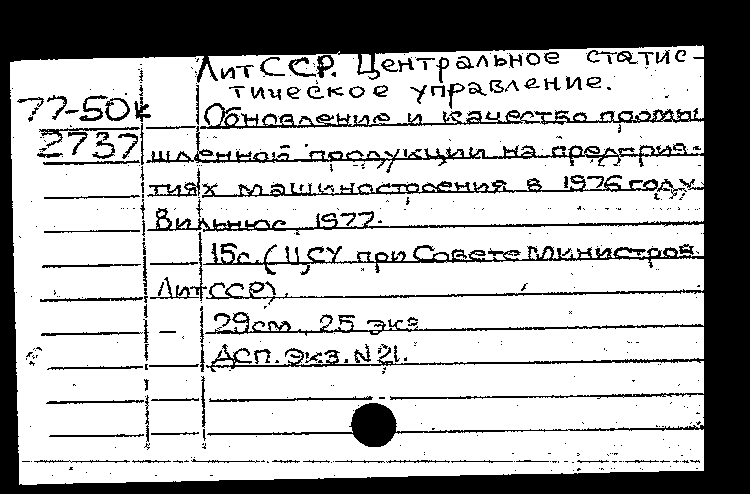 ЛитССР. Центральное статис-
тическое управление.
77-50к Обновление и качество промы
2737 шленной продукции на предприя-
тиях машиностроения в 1976 году.
Вильнюс, 1977.
15с. (ЦСУ при Совете Министров
ЛитССР).
29см. 25 экз
ДСП. Экз. N 21.